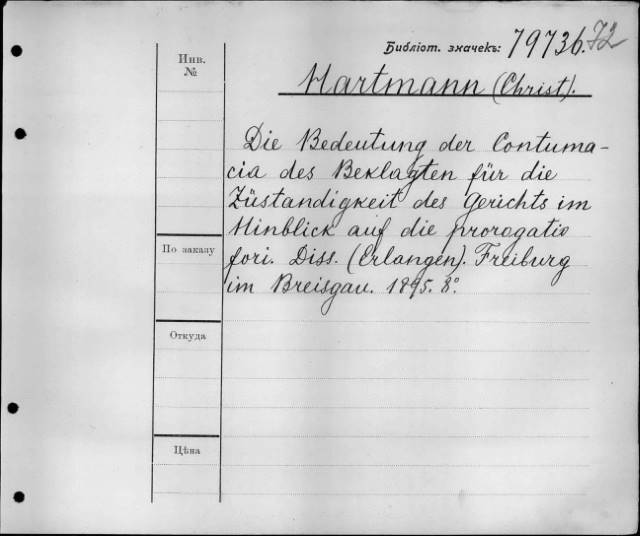 Библіот. значекъ: 79736.72
Инв.
№
Hartmann (Christ).
Die Bedeutung der Contuma-
cia des Beklagten für die
Züstandigkeit des Gerichts im
Hinblick auf die prorogatio
fori. Diss. (Erlangen). Freiburg
im Breisgau. 1895. 8°.
По заказу
Откуда
Цѣна